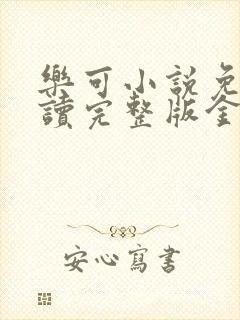 樂可小說免
讀完整版全
安心寫書